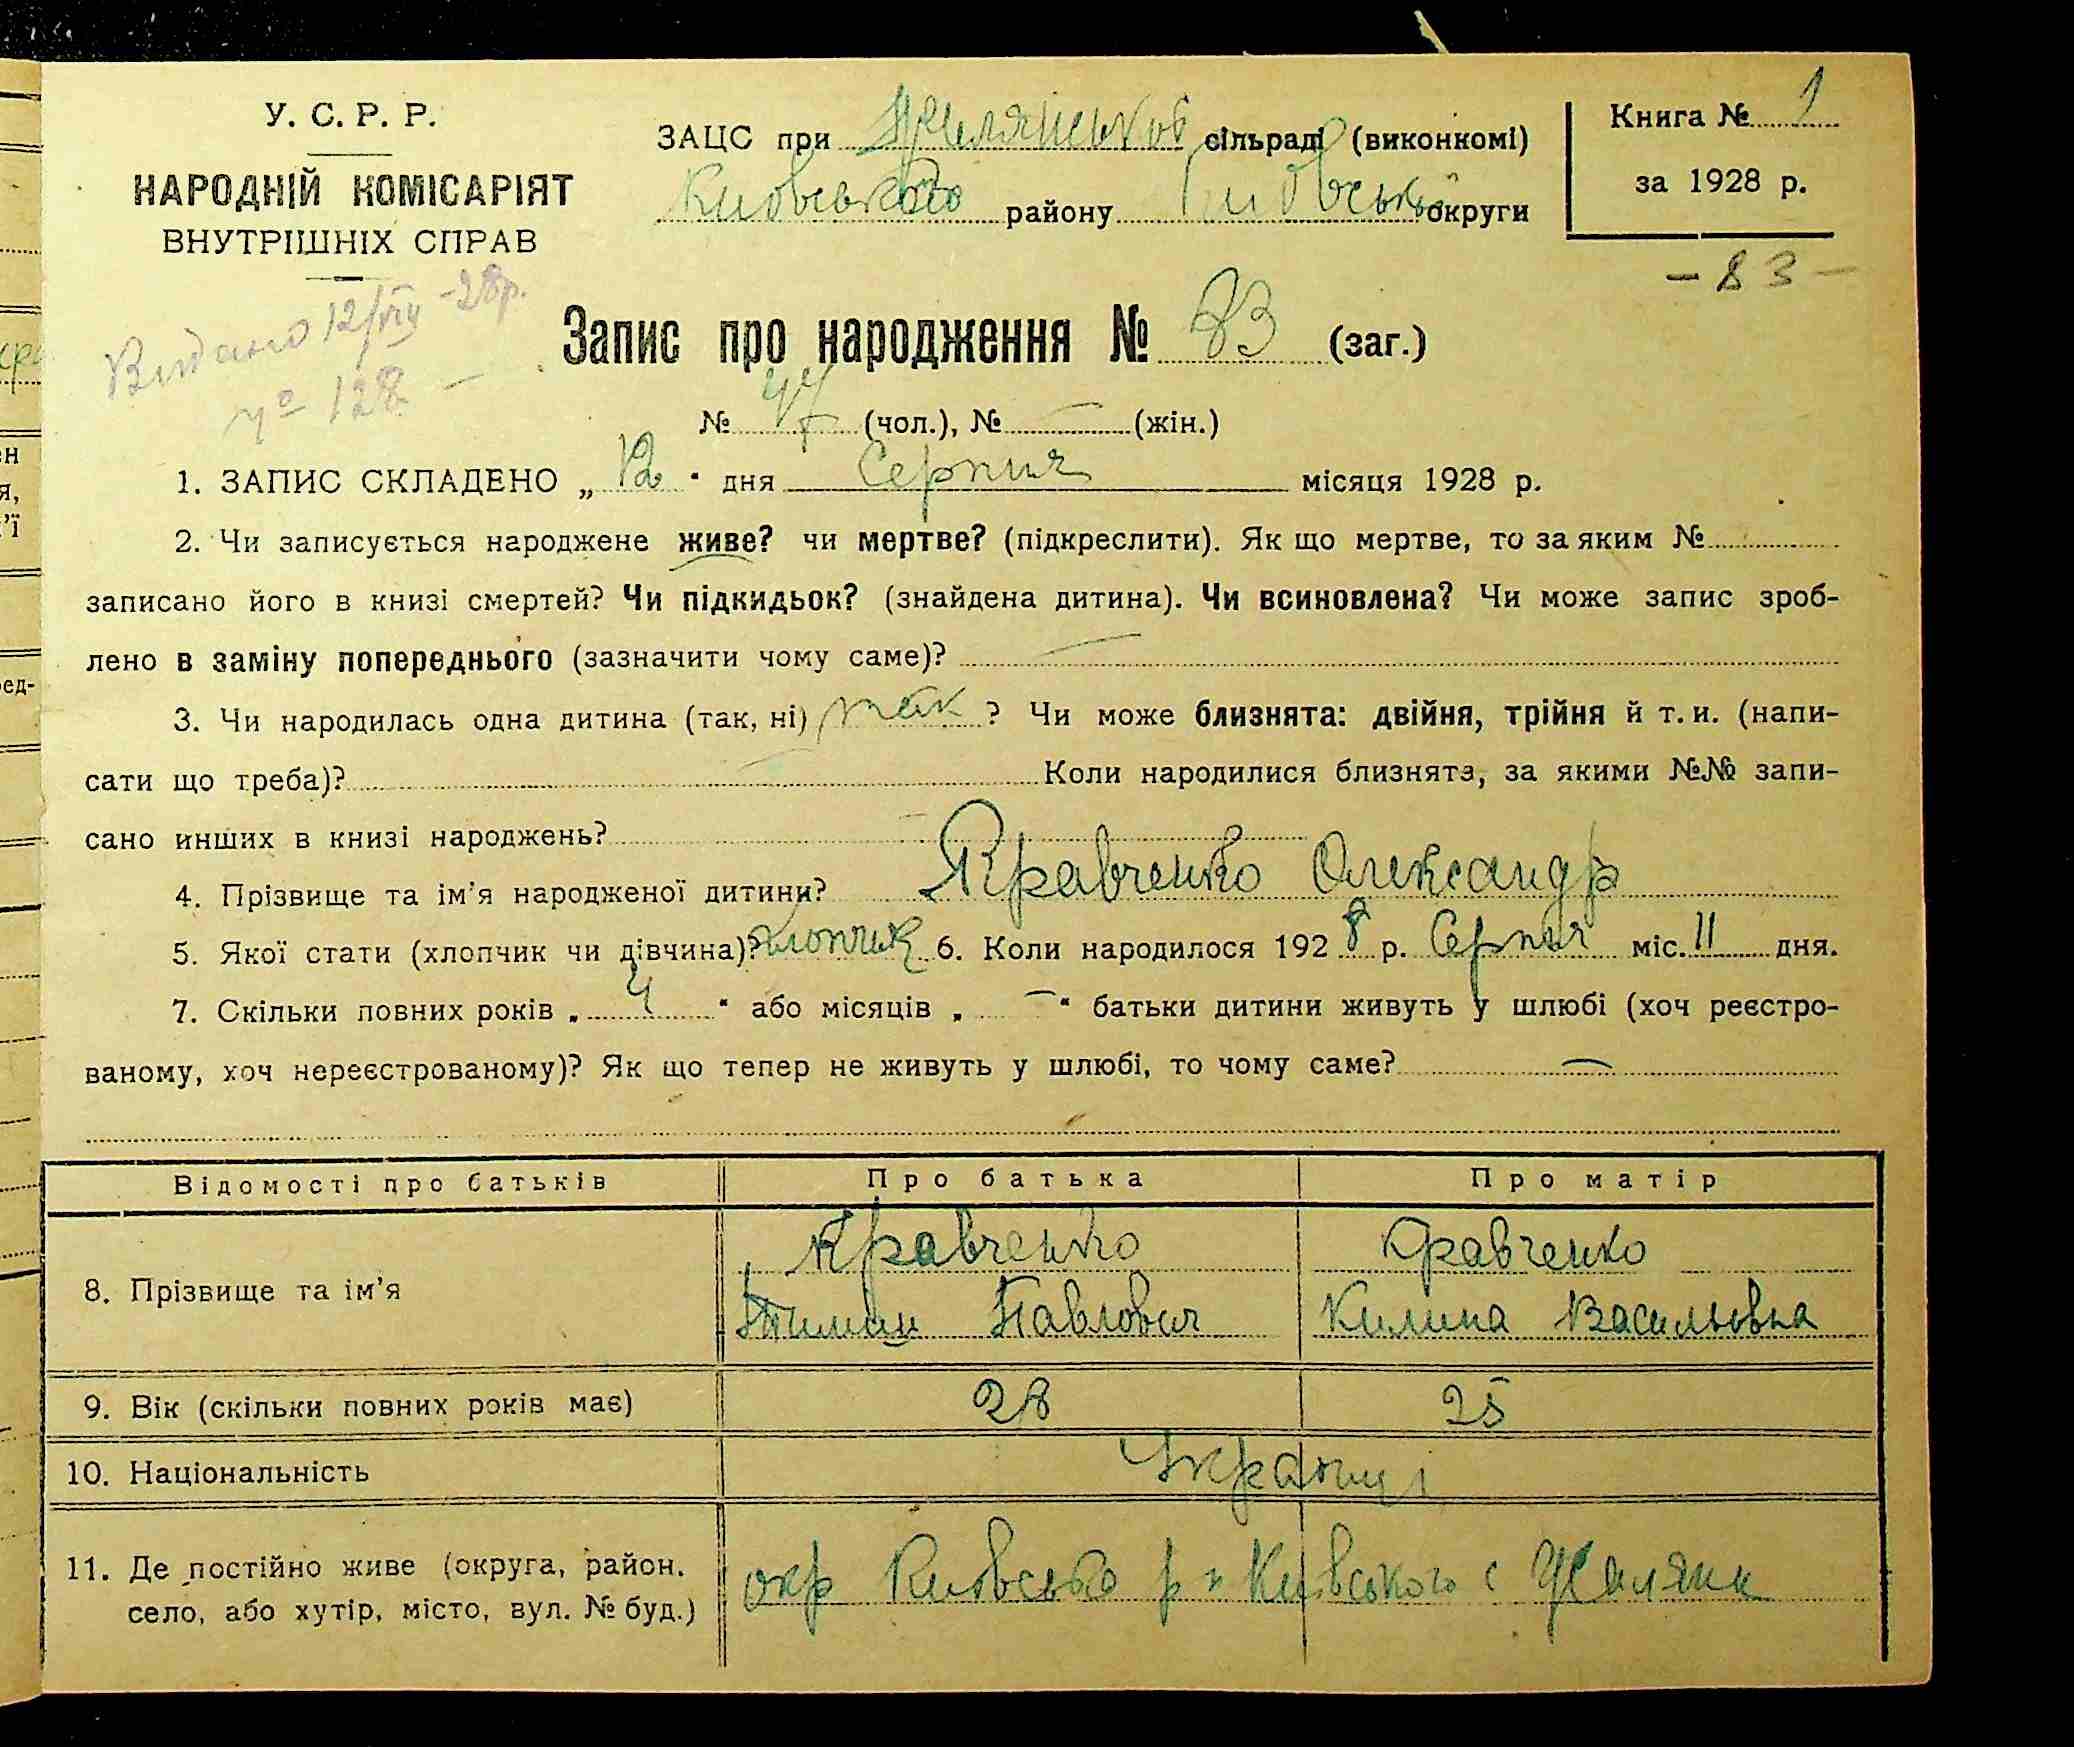 У. С. Р. Р.
НАРОДНІЙ КОМІСАРІЯТ
ВНУТРІШНІХ СПРАВ
ЗАЦС при сільраді (виконкомі)
Київського району Київської округи
Книга № 1
за 1928 р.
- 83 -
Видано 12/VIII -28 р.
№ 128 -
Запис про народження № 83 (заг.)
№ 47 (чол.), № — (жін.)
1. ЗАПИС СКЛАДЕНО „ 12 " дня Серпня місяця 1928 р.
2. Чи записується народжене живе? чи мертве? (підкреслити). Як що мертве, то за яким №
записано його в книзі смертей? Чи підкидьок? (знайдена дитина). Чи всиновлена? Чи може запис зроб-
лено в заміну попереднього (зазначити чому саме)? —
3. Чи народилась одна дитина (так, ні) так ? Чи може близнята: двійня, трійня й т. и. (напи-
сати що треба)? Коли народилися близнята, за якими №№ запи-
сано инших в книзі народжень?
4. Прізвище та ім'я народженої дитини? Кравченко Олександр
5. Якої стати (хлопчик чи дівчина)? хлопчик 6. Коли народилося 1928 р. Серпня міс. 11 дня.
7. Скільки повних років „ 4 " або місяців „ — " батьки дитини живуть у шлюбі (хоч реєстро-
ваному, хоч нереєстрованому)? Як що тепер не живуть у шлюбі, то чому саме? —
Відомості про батьків Про батька Про матір
8. Прізвище та ім'я Кравченко Кравченко
Тимиш Павлович Килина Васильовна
9. Вік (скільки повних років має) 28 25
10. Національність Українці
11. Де постійно живе (округа, район, село, або хутір, місто, вул. № буд.) окр Київсько р н Київського с Жиляни